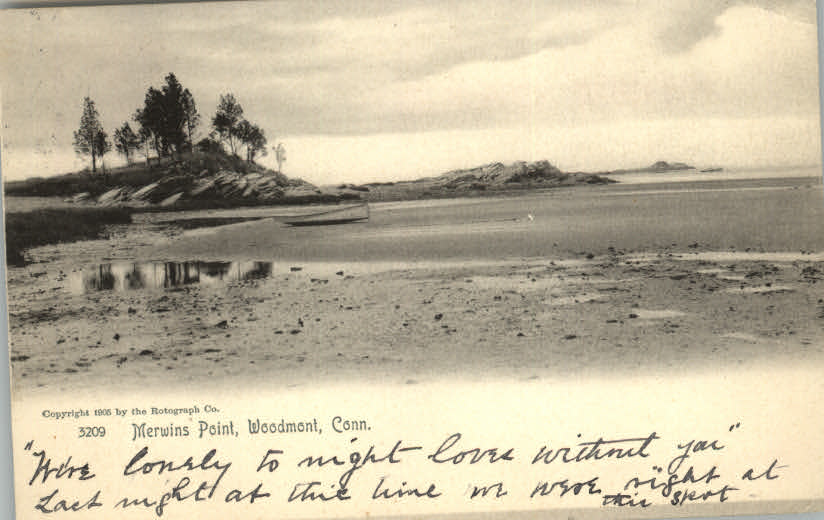 Copyright 1905 by the Rotograph Co.
3209 Merwins Point, Woodmont, Conn.
"We're lonely to night loves without you"
Last night at this time we were right at
this spot